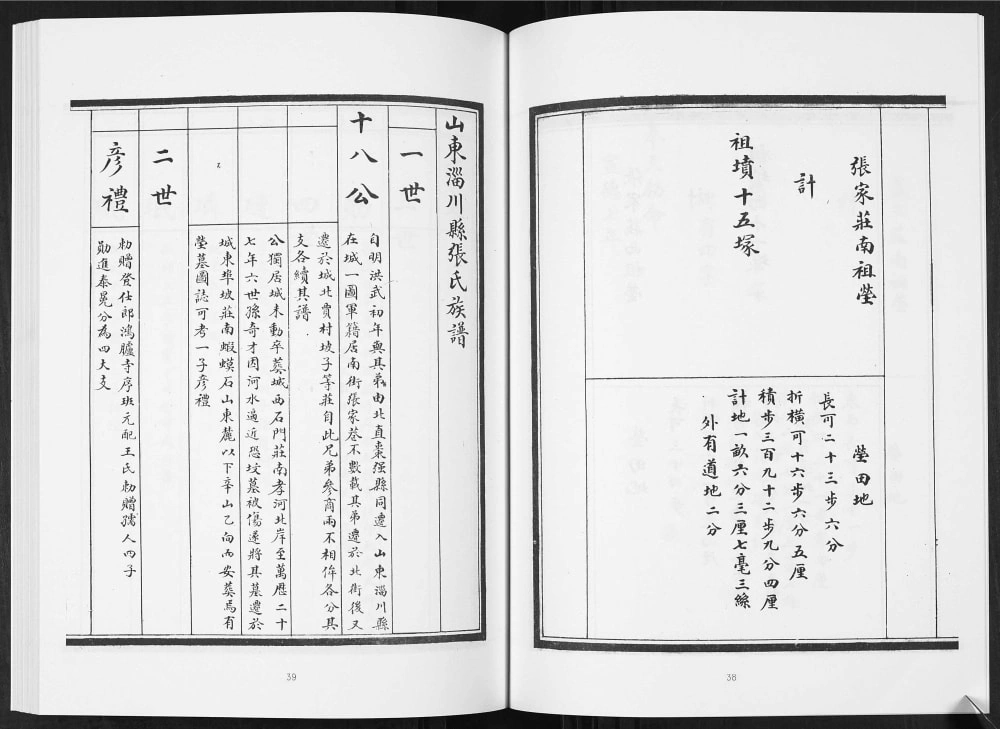 張家莊南祖塋
計
祖墳十五塚
塋田地
長可二十三步六分
折橫可十六步六分五厘
積步三百九十二步九分四厘
計地一畝六分三厘七毫三絲
外有道地二分
38
山東淄川縣張氏族譜
一世
十八公
自明洪武初年與其弟由北直棗强縣同遷入山東淄川縣
在城一圖軍籍居南街張家巷不數載其弟遷於北街後又
遷於城北賈村坡子等莊自此兄弟參商兩不相侔各分其
支各續其譜
公獨居城未動卒葬城西石門莊南孝河北岸至萬曆二十
七年六世孫奇才因河水逼近恐坟墓被傷遂將其墓遷於
城東埠坡莊南蝦蟆石山東麓以下辛山乙向而安葬焉有
塋墓圖誌可考一子彦禮
二世
彦禮
勅贈登仕郎鴻臚寺序班元配王氏勅贈孺人四子
勛進泰晃分為四大支
39